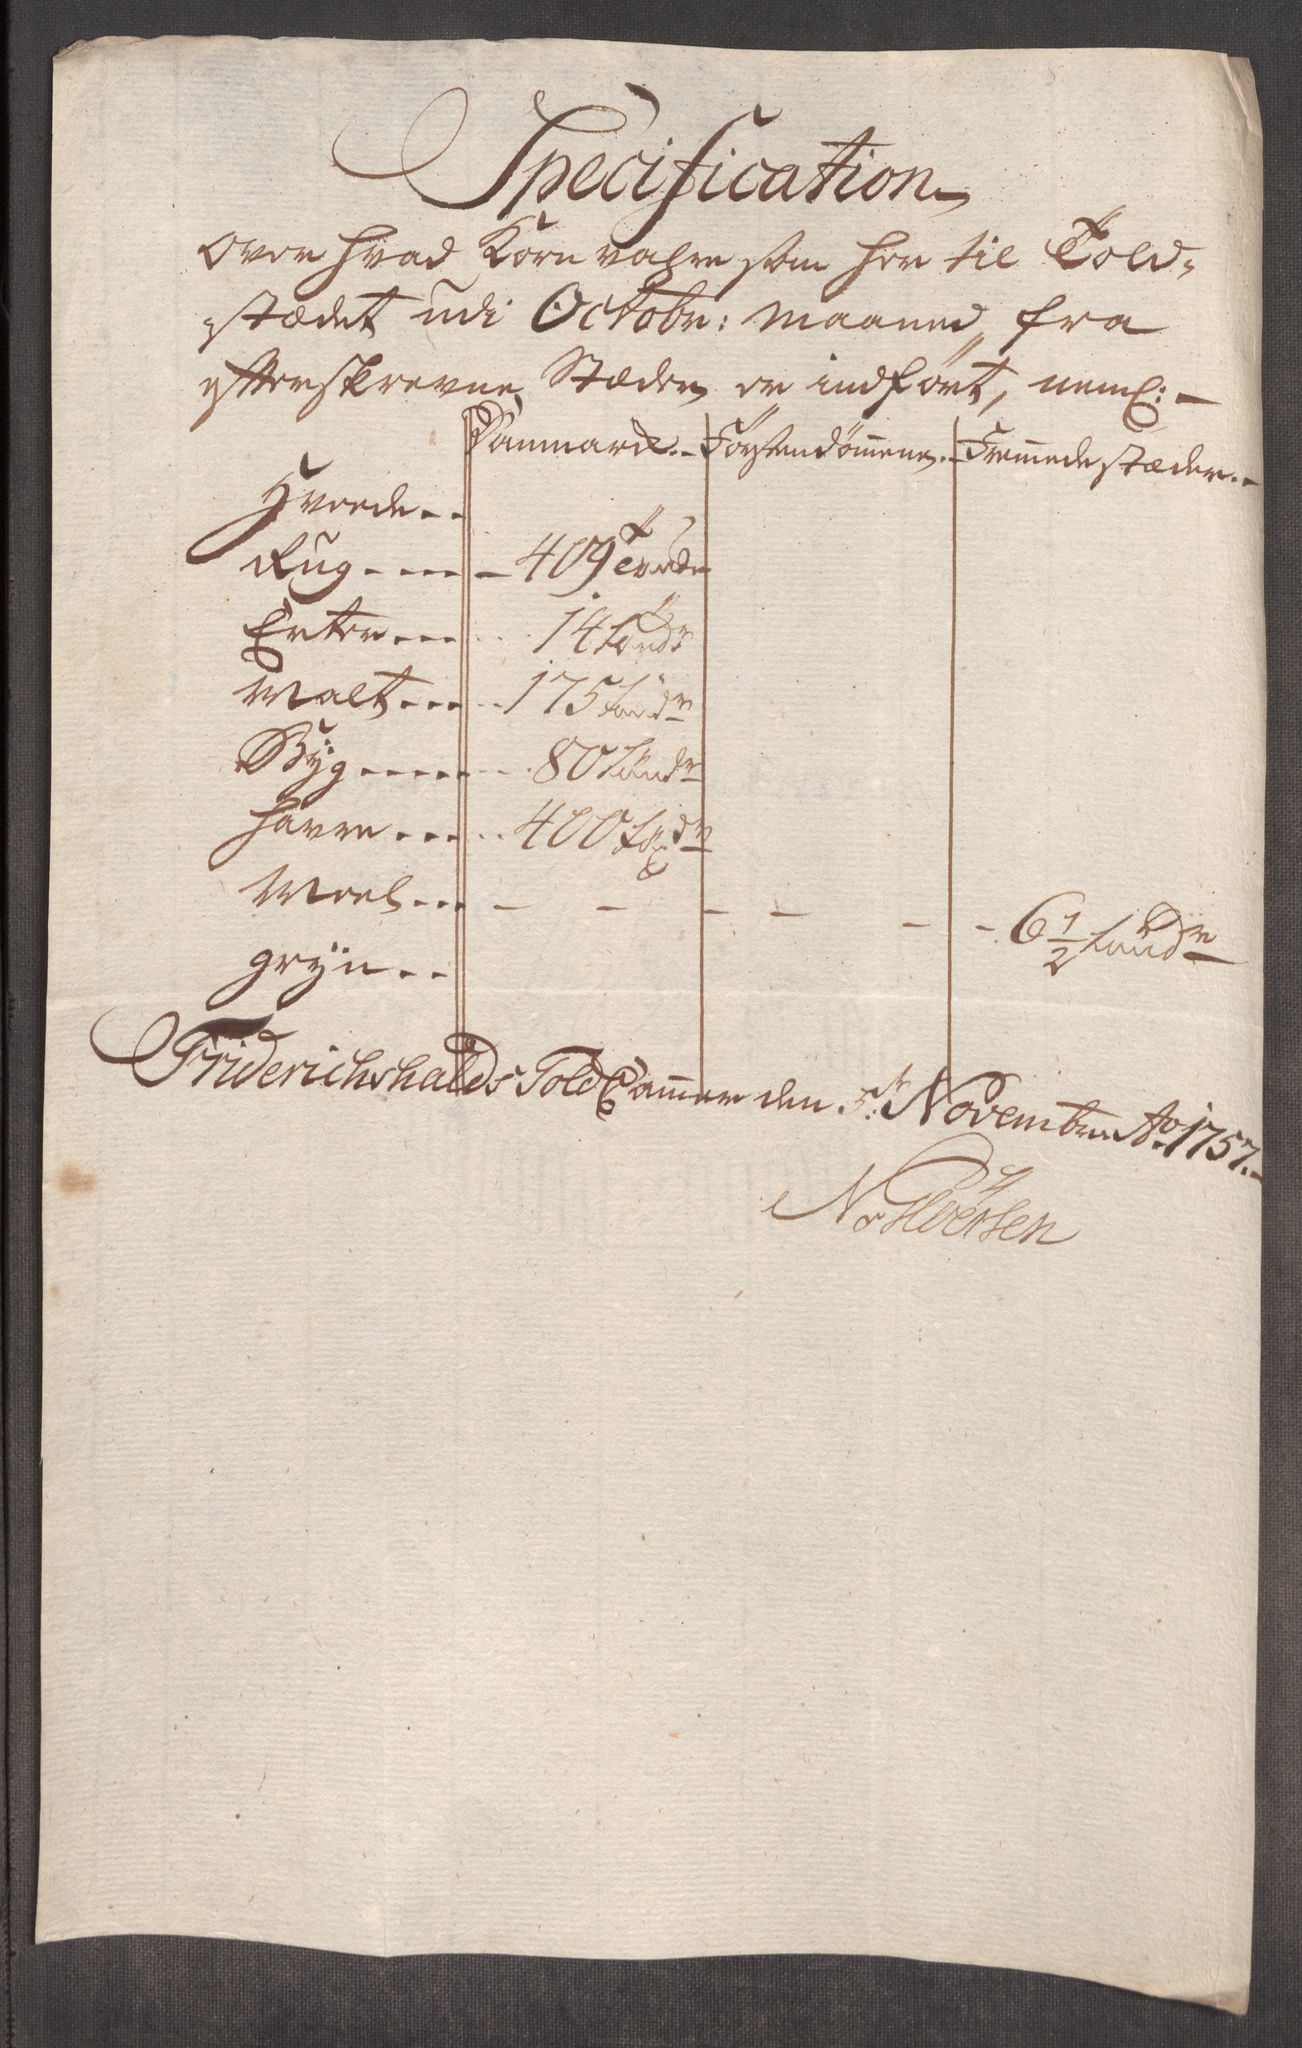 Specification
Over hvad Korn vahre som her til Told-
stædet udi Octobr: Maaned, fra
efterskrevne Stæder er indført, neml: -
Danmark.- Førstendømmene.- Fremmede stæder.-
Hvede..
Rug - - - - - 409 Tønder
Erter - - - 14 tønder
Malt - - - 175 tønder
Byg - - - - - 80 tønder
Havre - - - 400 tønder
Meel - - - - - - - - - 6 1/2 tønder
gryn - -
Friderichshalds Told Cammer den 5t: Novembr Ao 1757.-